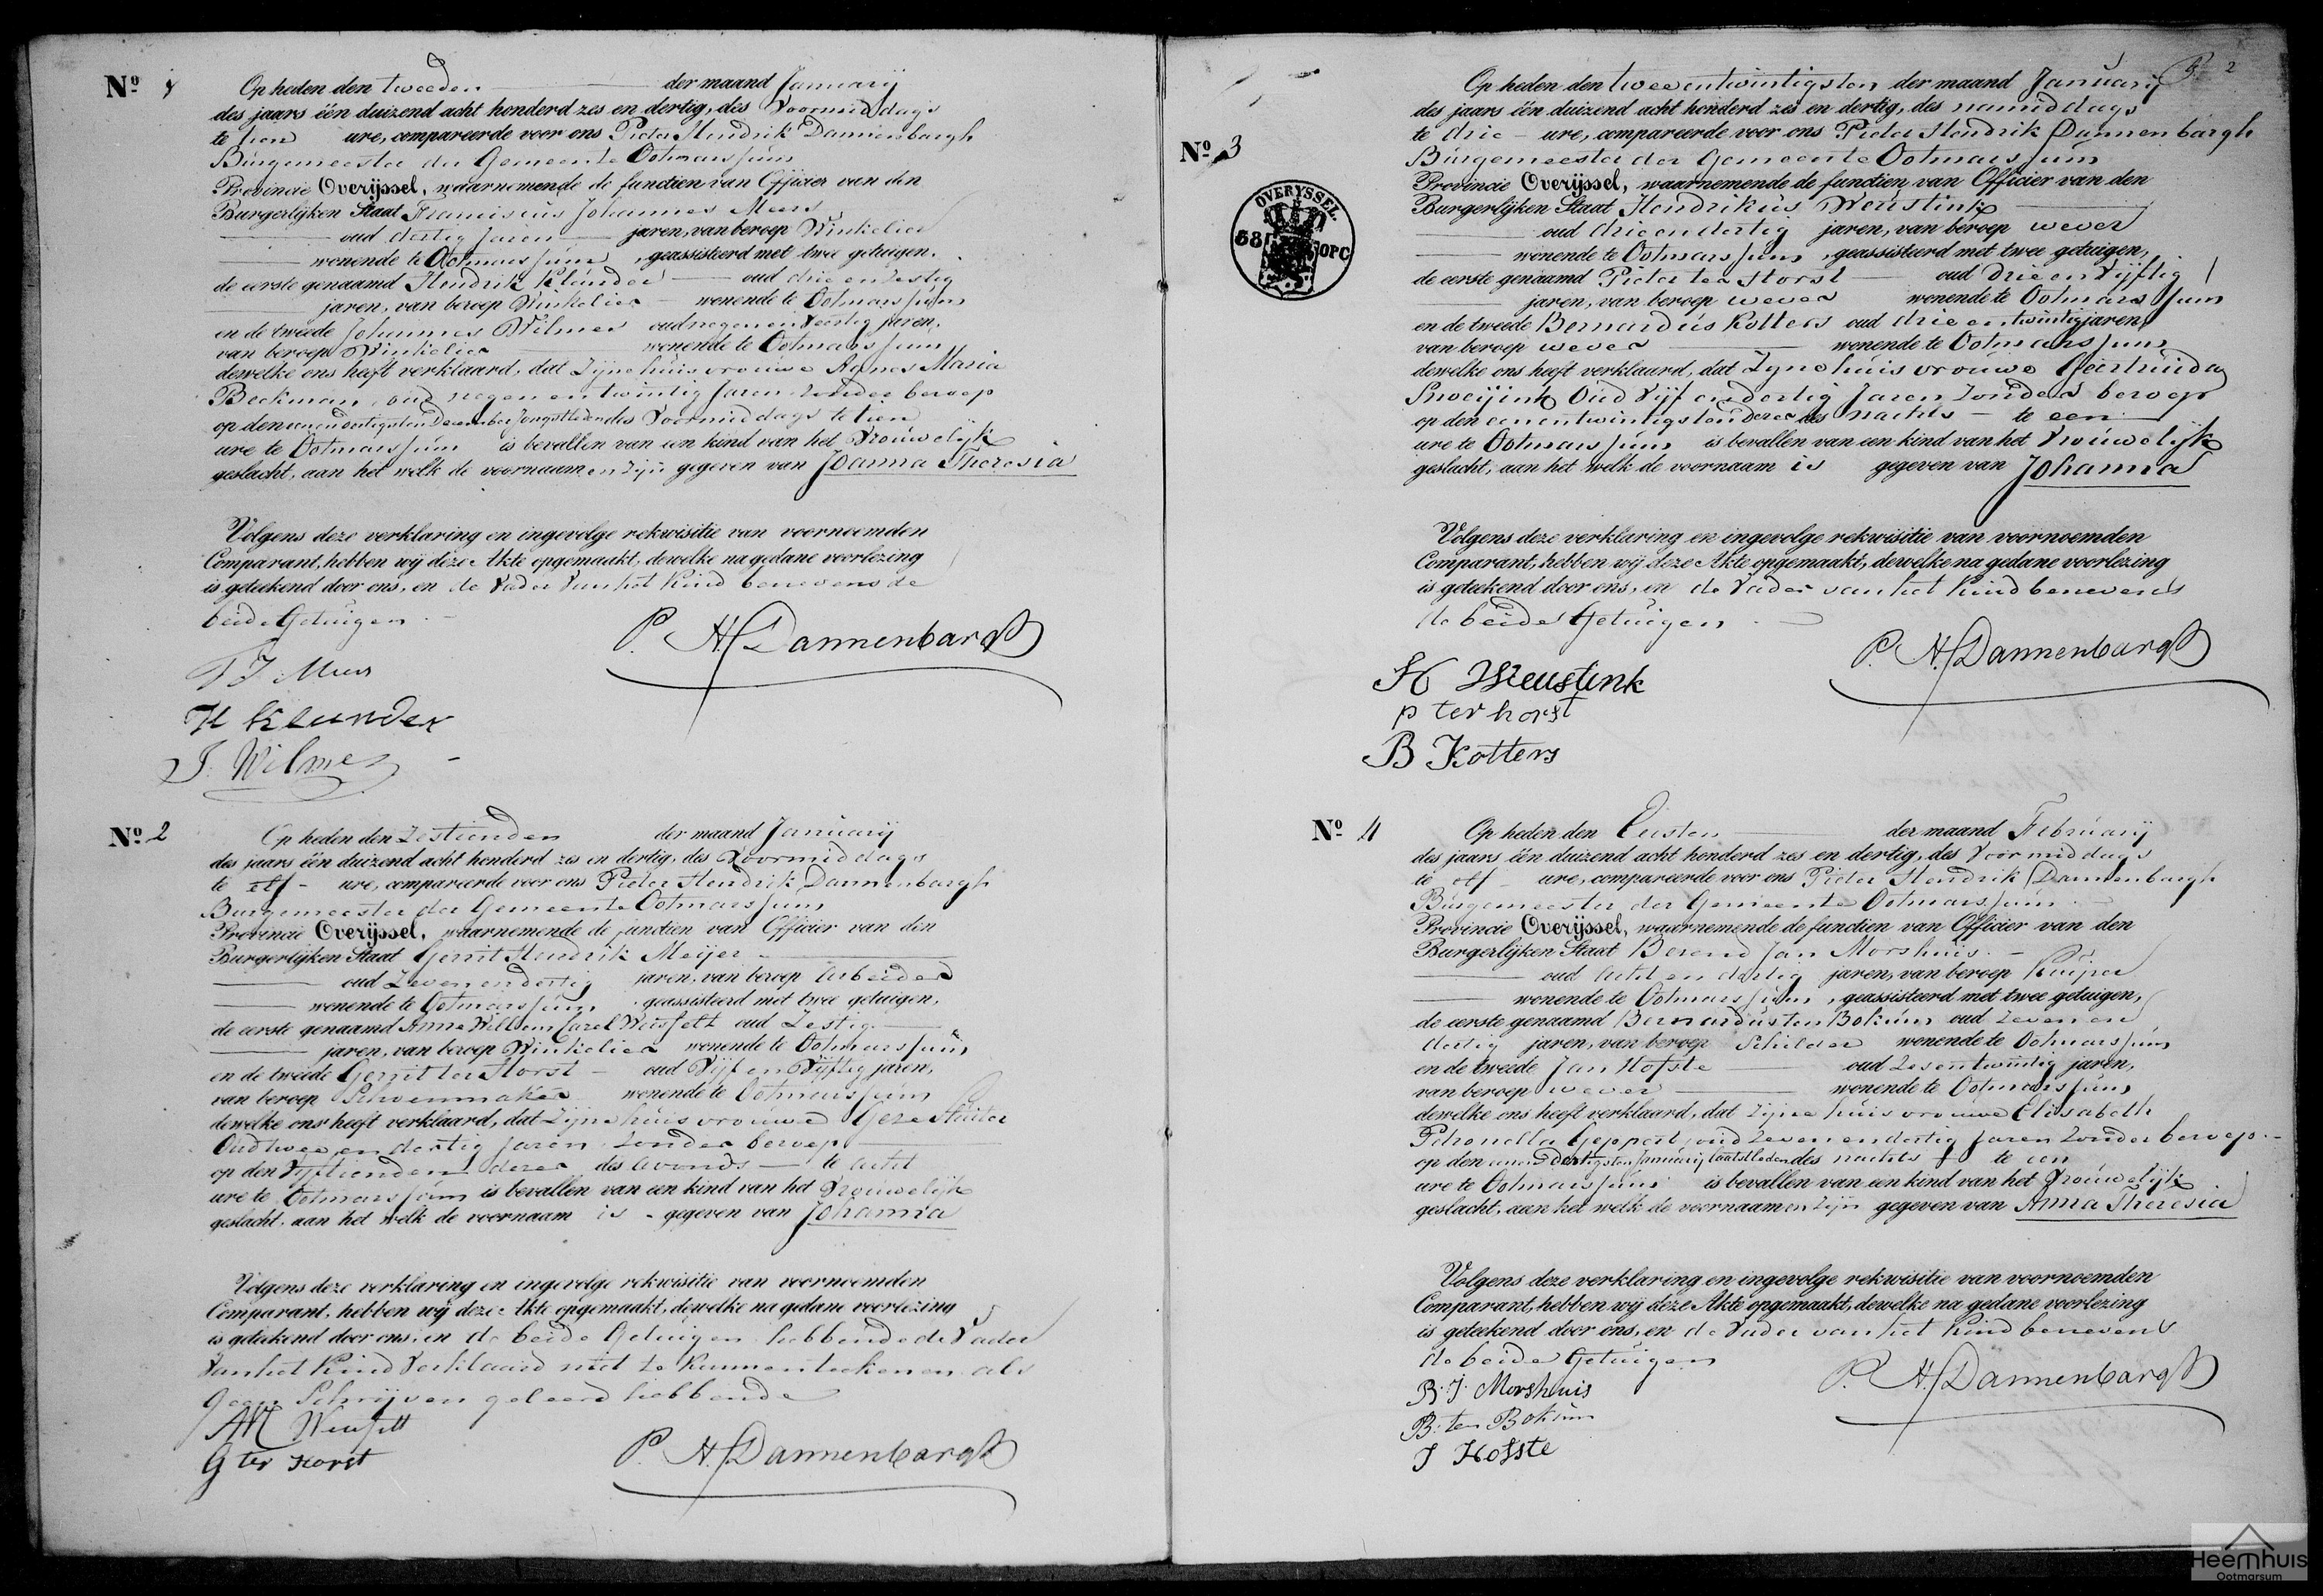 Nº 1
Op heden den tweeden der maand Januarij
des jaars één duizend acht honderd zes en dertig, des Voormiddags
te tien ure, compareerde voor ons Pieter Hendrik Dannenbargh
Burgemeester der Gemeente Ootmarssum
Provincie Overijssel, waarnemende de functien van Officier van den
Burgerlijken Staat Franciscus Johannes Mees
oud dertig Jaren jaren, van beroep Winkelier
wonende te Ootmarssum, geassisteerd met twee getuigen,
de eerste genaamd Hendrik Kleunder oud drie en zestig
jaren, van beroep Winkelier wonende te Ootmarssum
en de tweede Johannes Wilmer oud negen en veertig jaren,
van beroep Winkelier wonende te Ootmarssum
dewelke ons heeft verklaard, dat Zijne huisvrouwe Agnes Maria
Beckman, oud negen en twintig Jaren zonder beroep
op den een en dertigsten December Jongstleden des Voormiddags te tien
ure te Ootmarssum is bevallen van een kind van het Vrouwelijk
geslacht, aan het welk de voornaamen zijn gegeven van Joanna Theresia
Volgens deze verklaring en ingevolge rekwisitie van voornoemden
Comparant, hebben wij deze Akte opgemaakt, dewelke na gedane voorlezing
is geteekend door ons, en de Vader van het Kind benevens de
beide Getuigen.
P. H. Dannenbargh
F J Mees
H Kleunder
J. Wilmer
Nº 2
Op heden den Zestienden der maand Januarij
des jaars één duizend acht honderd zes en dertig, des Voormiddags
te elf ure, compareerde voor ons Pieter Hendrik Dannenbargh
Burgemeester der Gemeente Ootmarssum
Provincie Overijssel, waarnemende de functien van Officier van den
Burgerlijken Staat Gerrit Hendrik Meijer
oud Zeven en dertig jaren, van beroep Arbeider
wonende te Ootmarssum, geassisteerd met twee getuigen,
de eerste genaamd Anne Willem Carel Weusfelt oud Zestig
jaren, van beroep Winkelier wonende te Ootmarssum
en de tweede Gerrit ter Horst oud Vijf en Vijftig jaren,
van beroep Schoenmaker wonende te Ootmarssum
dewelke ons heeft verklaard, dat Zijne huisvrouwe Geze
Oud twee en dertig Jaren zonder beroep
op den Vijftienden dezer des Avonds te acht
ure te Ootmarssum is bevallen van een kind van het Vrouwelijk
geslacht, aan het welk de voornaam is gegeven van Johanna
Volgens deze verklaring en ingevolge rekwisitie van voornoemden
Comparant, hebben wij deze Akte opgemaakt, dewelke na gedane voorlezing
is geteekend door ons, en de beide Getuigen hebbende de Vader
van het Kind Verklaard niet te kunnen teekenen als
geen Schrijven geleerd hebbende
G ter Horst
P. H. Dannenbargh
2
Nº 3
OVERYSSEL.
OPC
Op heden den tweeentwintigsten der maand Januarij
des jaars één duizend acht honderd zes en dertig, des namiddags
te drie ure, compareerde voor ons Pieter Hendrik Dannenbargh
Burgemeester der Gemeente Ootmarssum
Provincie Overijssel, waarnemende de functien van Officier van den
Burgerlijken Staat Hendrikus Weustink
oud drie en dertig jaren, van beroep wever
wonende te Ootmarssum, geassisteerd met twee getuigen,
de eerste genaamd Pieter ter Horst oud Drie en Vijftig
jaren, van beroep wever wonende te Ootmarssum
en de tweede Bernardus Kotters oud drie en twintig jaren,
van beroep wever wonende te Ootmarssum
dewelke ons heeft verklaard, dat Zijne huisvrouwe Geertruida
Snoeijink Oud Vijf en dertig Jaren zonder beroep
op den eenentwintigsten dezer des nachts te een
ure te Ootmarssum is bevallen van een kind van het Vrouwelijk
geslacht, aan het welk de voornaam is gegeven van Johanna
Volgens deze verklaring en ingevolge rekwisitie van voornoemden
Comparant, hebben wij deze Akte opgemaakt, dewelke na gedane voorlezing
is geteekend door ons, en de Vader van het Kind benevens
de beide Getuigen.
P. H. Dannenbargh
H Weustink
p ter horst
B Kotters
Nº 4
Op heden den Eersten der maand Februarij
des jaars één duizend acht honderd zes en dertig, des Voormiddags
te elf ure, compareerde voor ons Pieter Hendrik Dannenbargh
Burgemeester der Gemeente Ootmarssum
Provincie Overijssel, waarnemende de functien van Officier van den
Burgerlijken Staat Berend Jan Morshuis
oud Acht en dertig jaren, van beroep Kuiper
wonende te Ootmarssum, geassisteerd met twee getuigen,
de eerste genaamd Bernardus ten Bokum oud Zeven en
dertig jaren, van beroep Schilder wonende te Ootmarssum
en de tweede Jan Hofste oud Zesentwintig jaren,
van beroep wever wonende te Ootmarssum
dewelke ons heeft verklaard, dat zijne huisvrouwe Elisabeth
Petronella Geppert, oud Zeven en dertig Jaren zonder beroep
op den een en Dertigsten Januarij laatstleden des nachts te een
ure te Ootmarssum is bevallen van een kind van het Vrouwelijk
geslacht, aan het welk de voornaamen zijn gegeven van Anna Theresia
Volgens deze verklaring en ingevolge rekwisitie van voornoemden
Comparant, hebben wij deze Akte opgemaakt, dewelke na gedane voorlezing
is geteekend door ons, en de Vader van het Kind benevens
de beide Getuigen
P. H. Dannenbargh
B. J. Morshuis
B. ten Bokum
J Hofste
Heemhuis
Ootmarsum